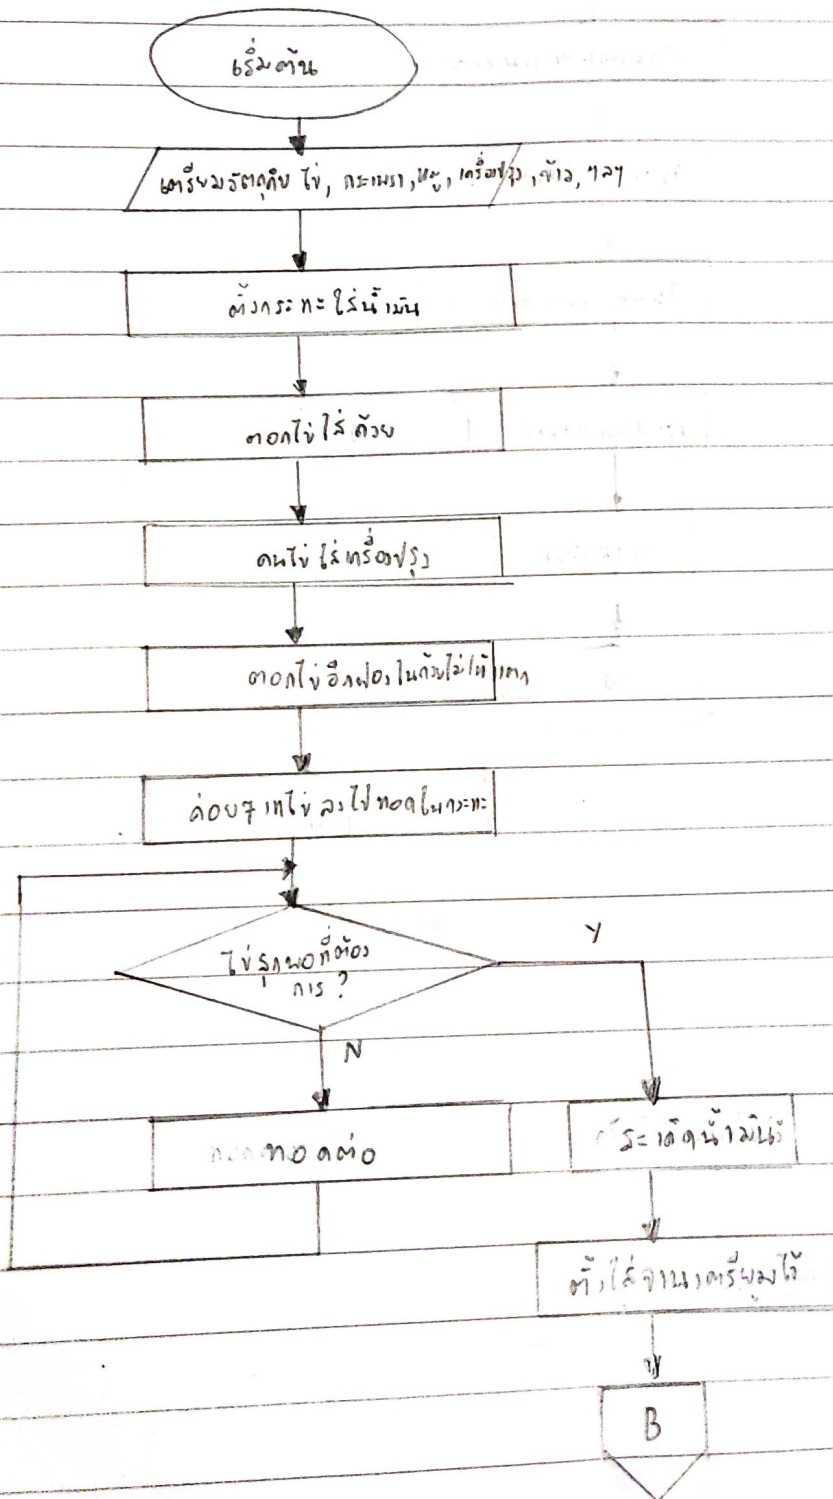 เริ่มต้น
เตรียมวัตถุดิบ ไข่, กระเพรา, หมู, เครื่องปรุง, ข้าว, ฯลฯ
ตั้งกระทะใส่น้ำมัน
ตอกไข่ใส่ถ้วย
คนไข่ ใส่เครื่องปรุง
ตอกไข่อีกฟองในถ้วยไม่ให้แตก
ค่อยๆ เทไข่ ลงไปทอดในกระทะ
ไข่สุกพอที่ต้อง
การ ?
Y
N
ทอดต่อ
น้ำมัน
ใส่จานเตรียมไว้
B